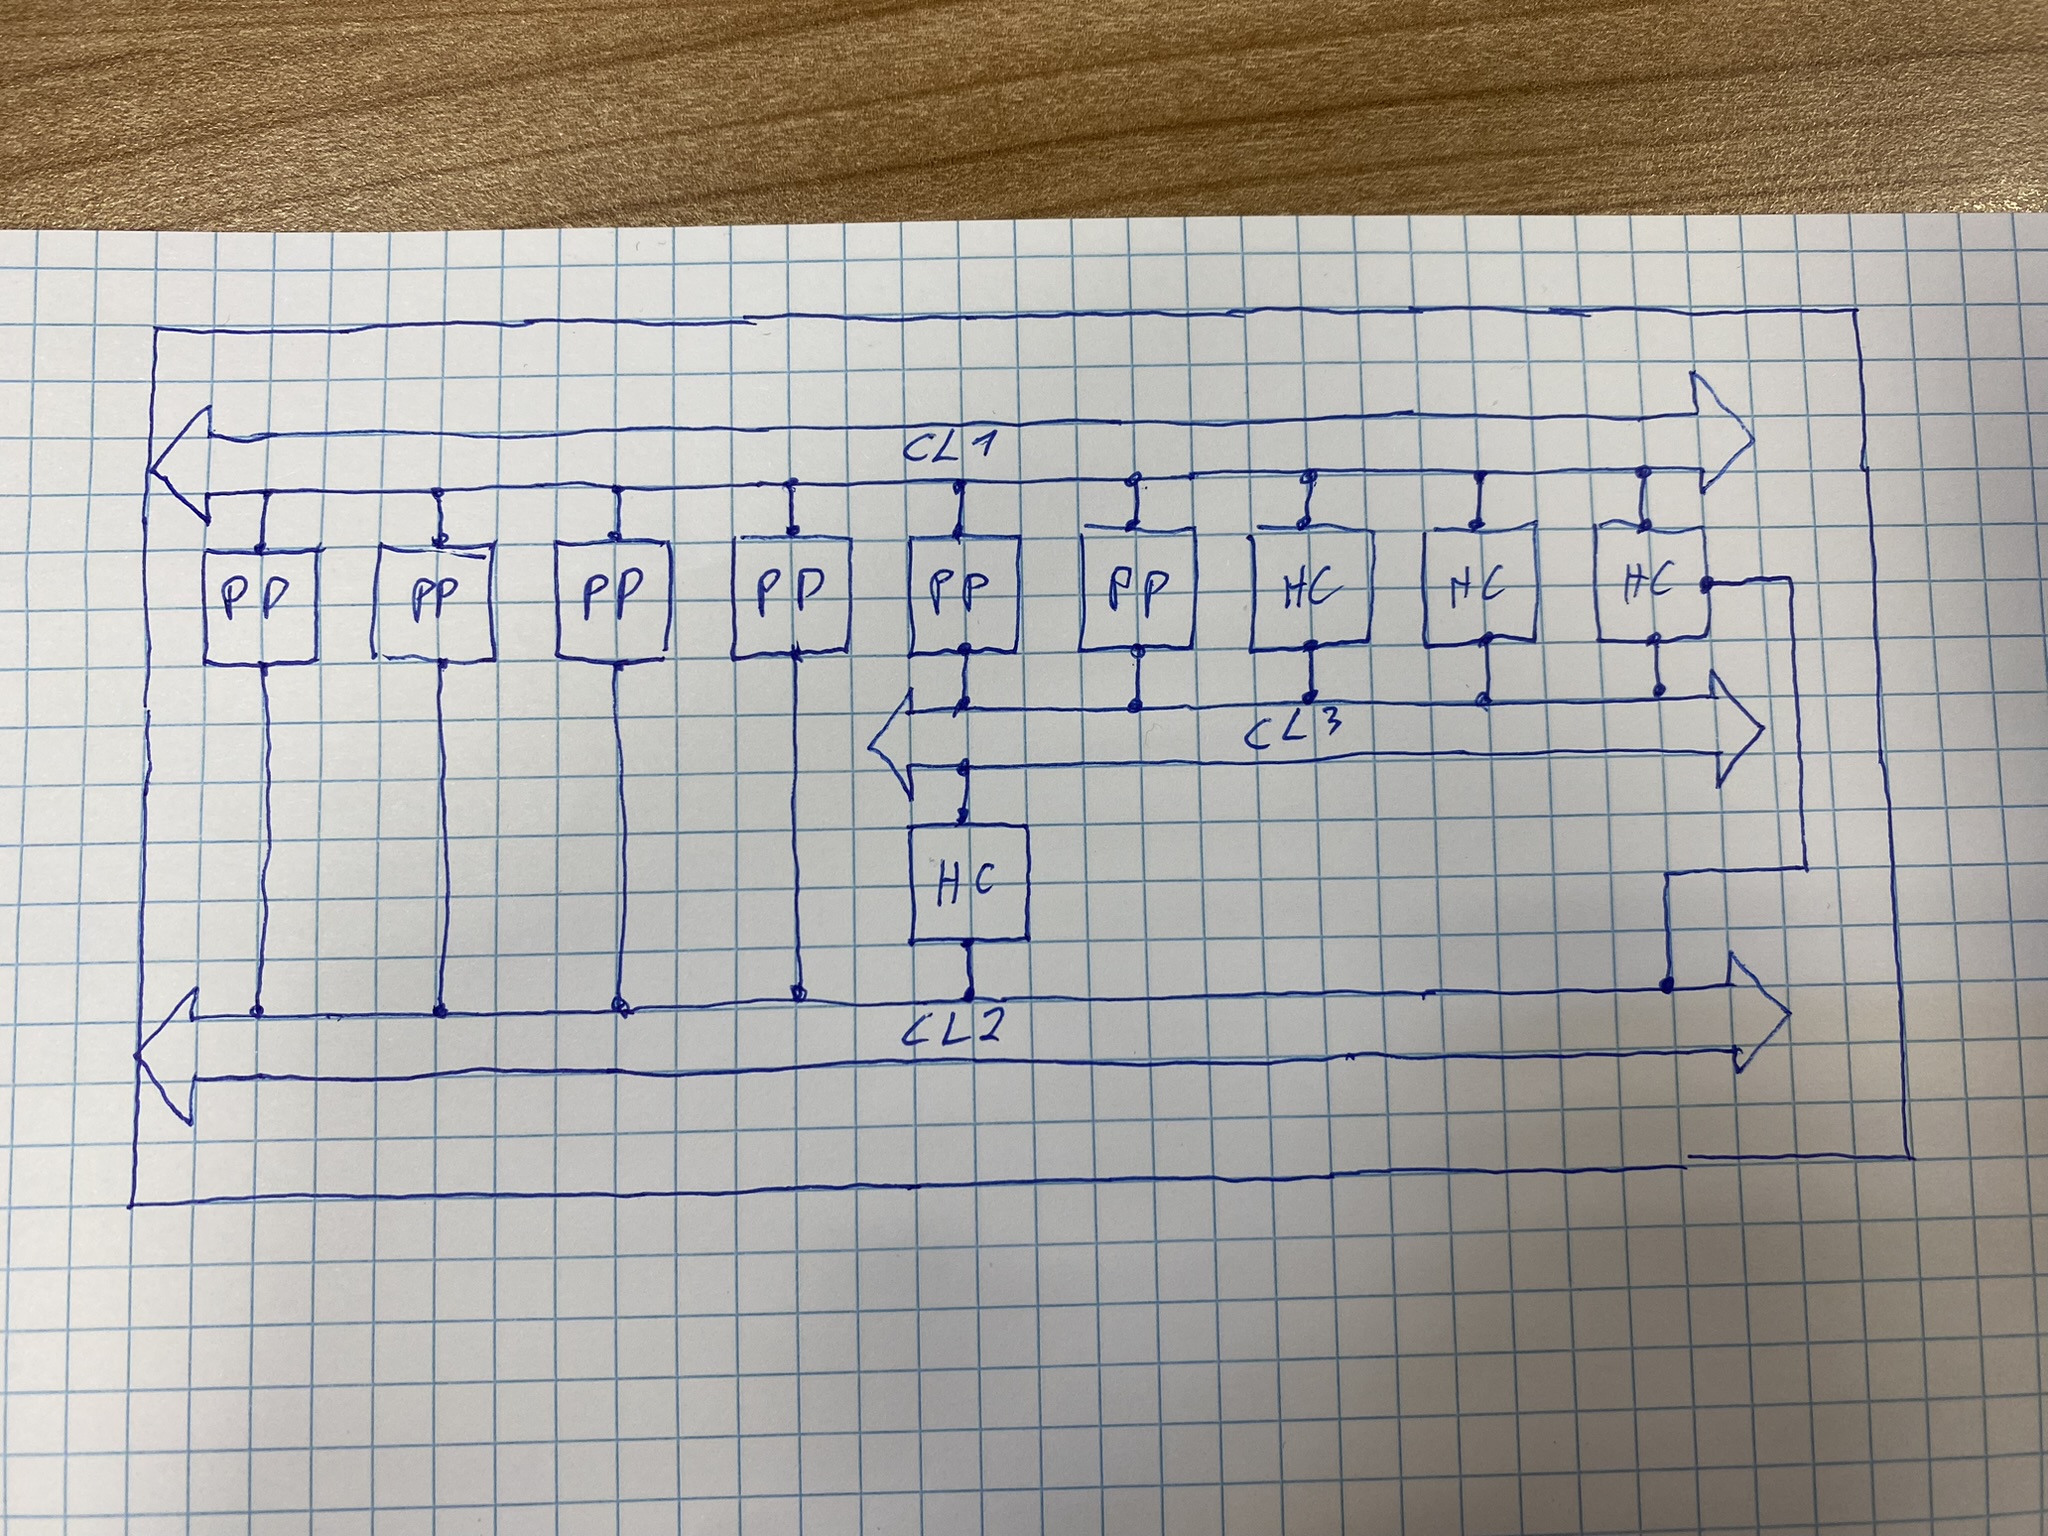 CL1
PP PP PP PP PP PP HC HC HC
CL3
HC
CL2